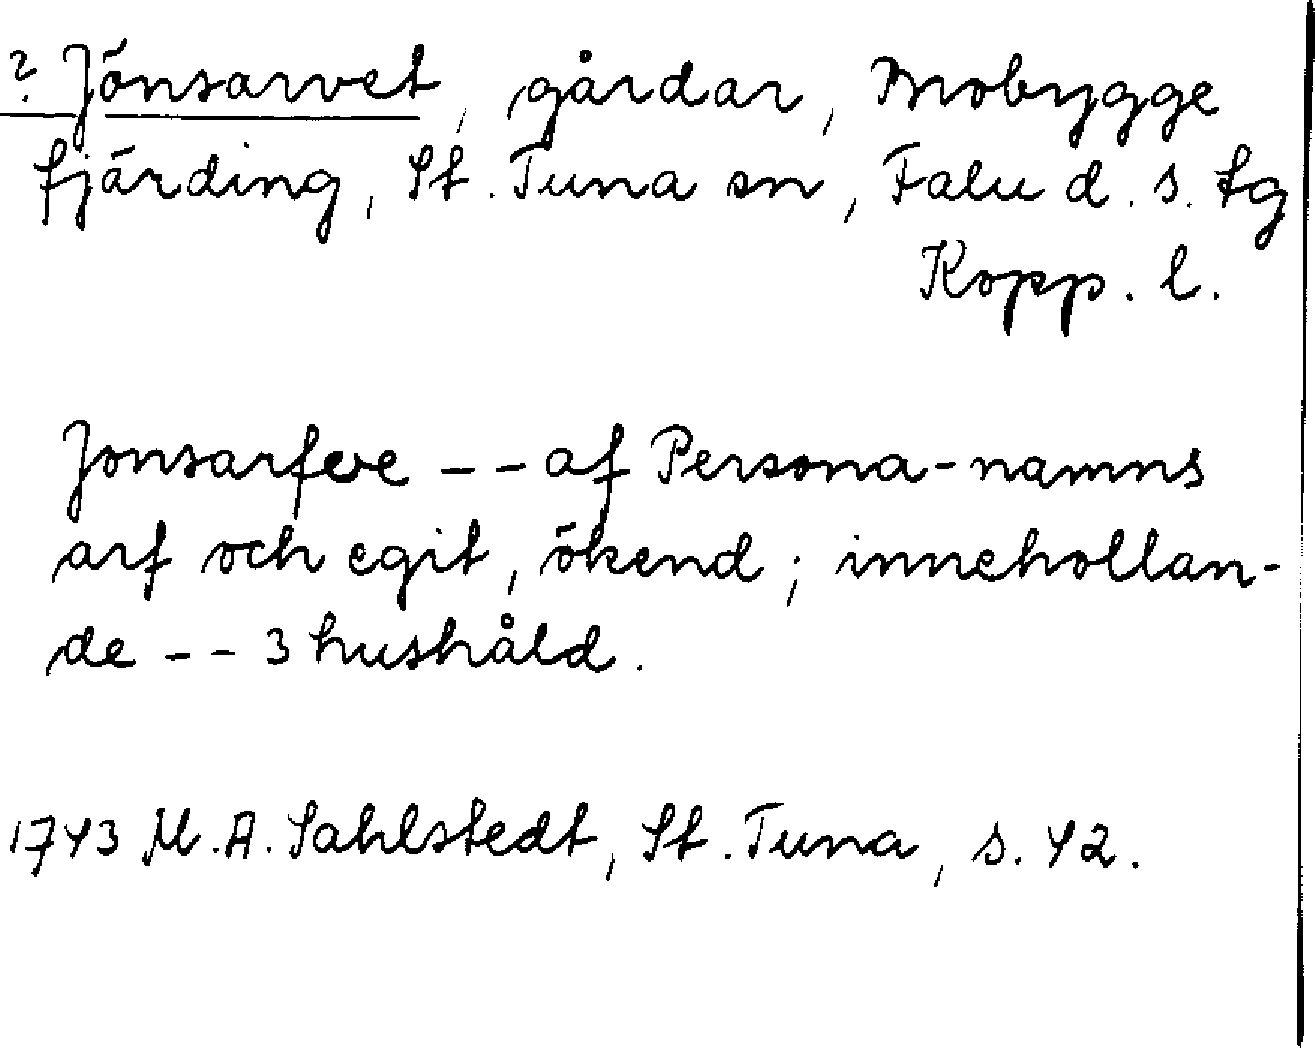 ? Jönsarvet, gårdar, Mobygge
fjärding, St. Tuna sn, Falu d. s. tg
Kopp. l.
Jonsarfve -- af Persona-namns
arf och egit, ökend; innehollan-
de -- 3 hushåld.
1743 M. A. Sahlstedt, St. Tuna, s. 42.